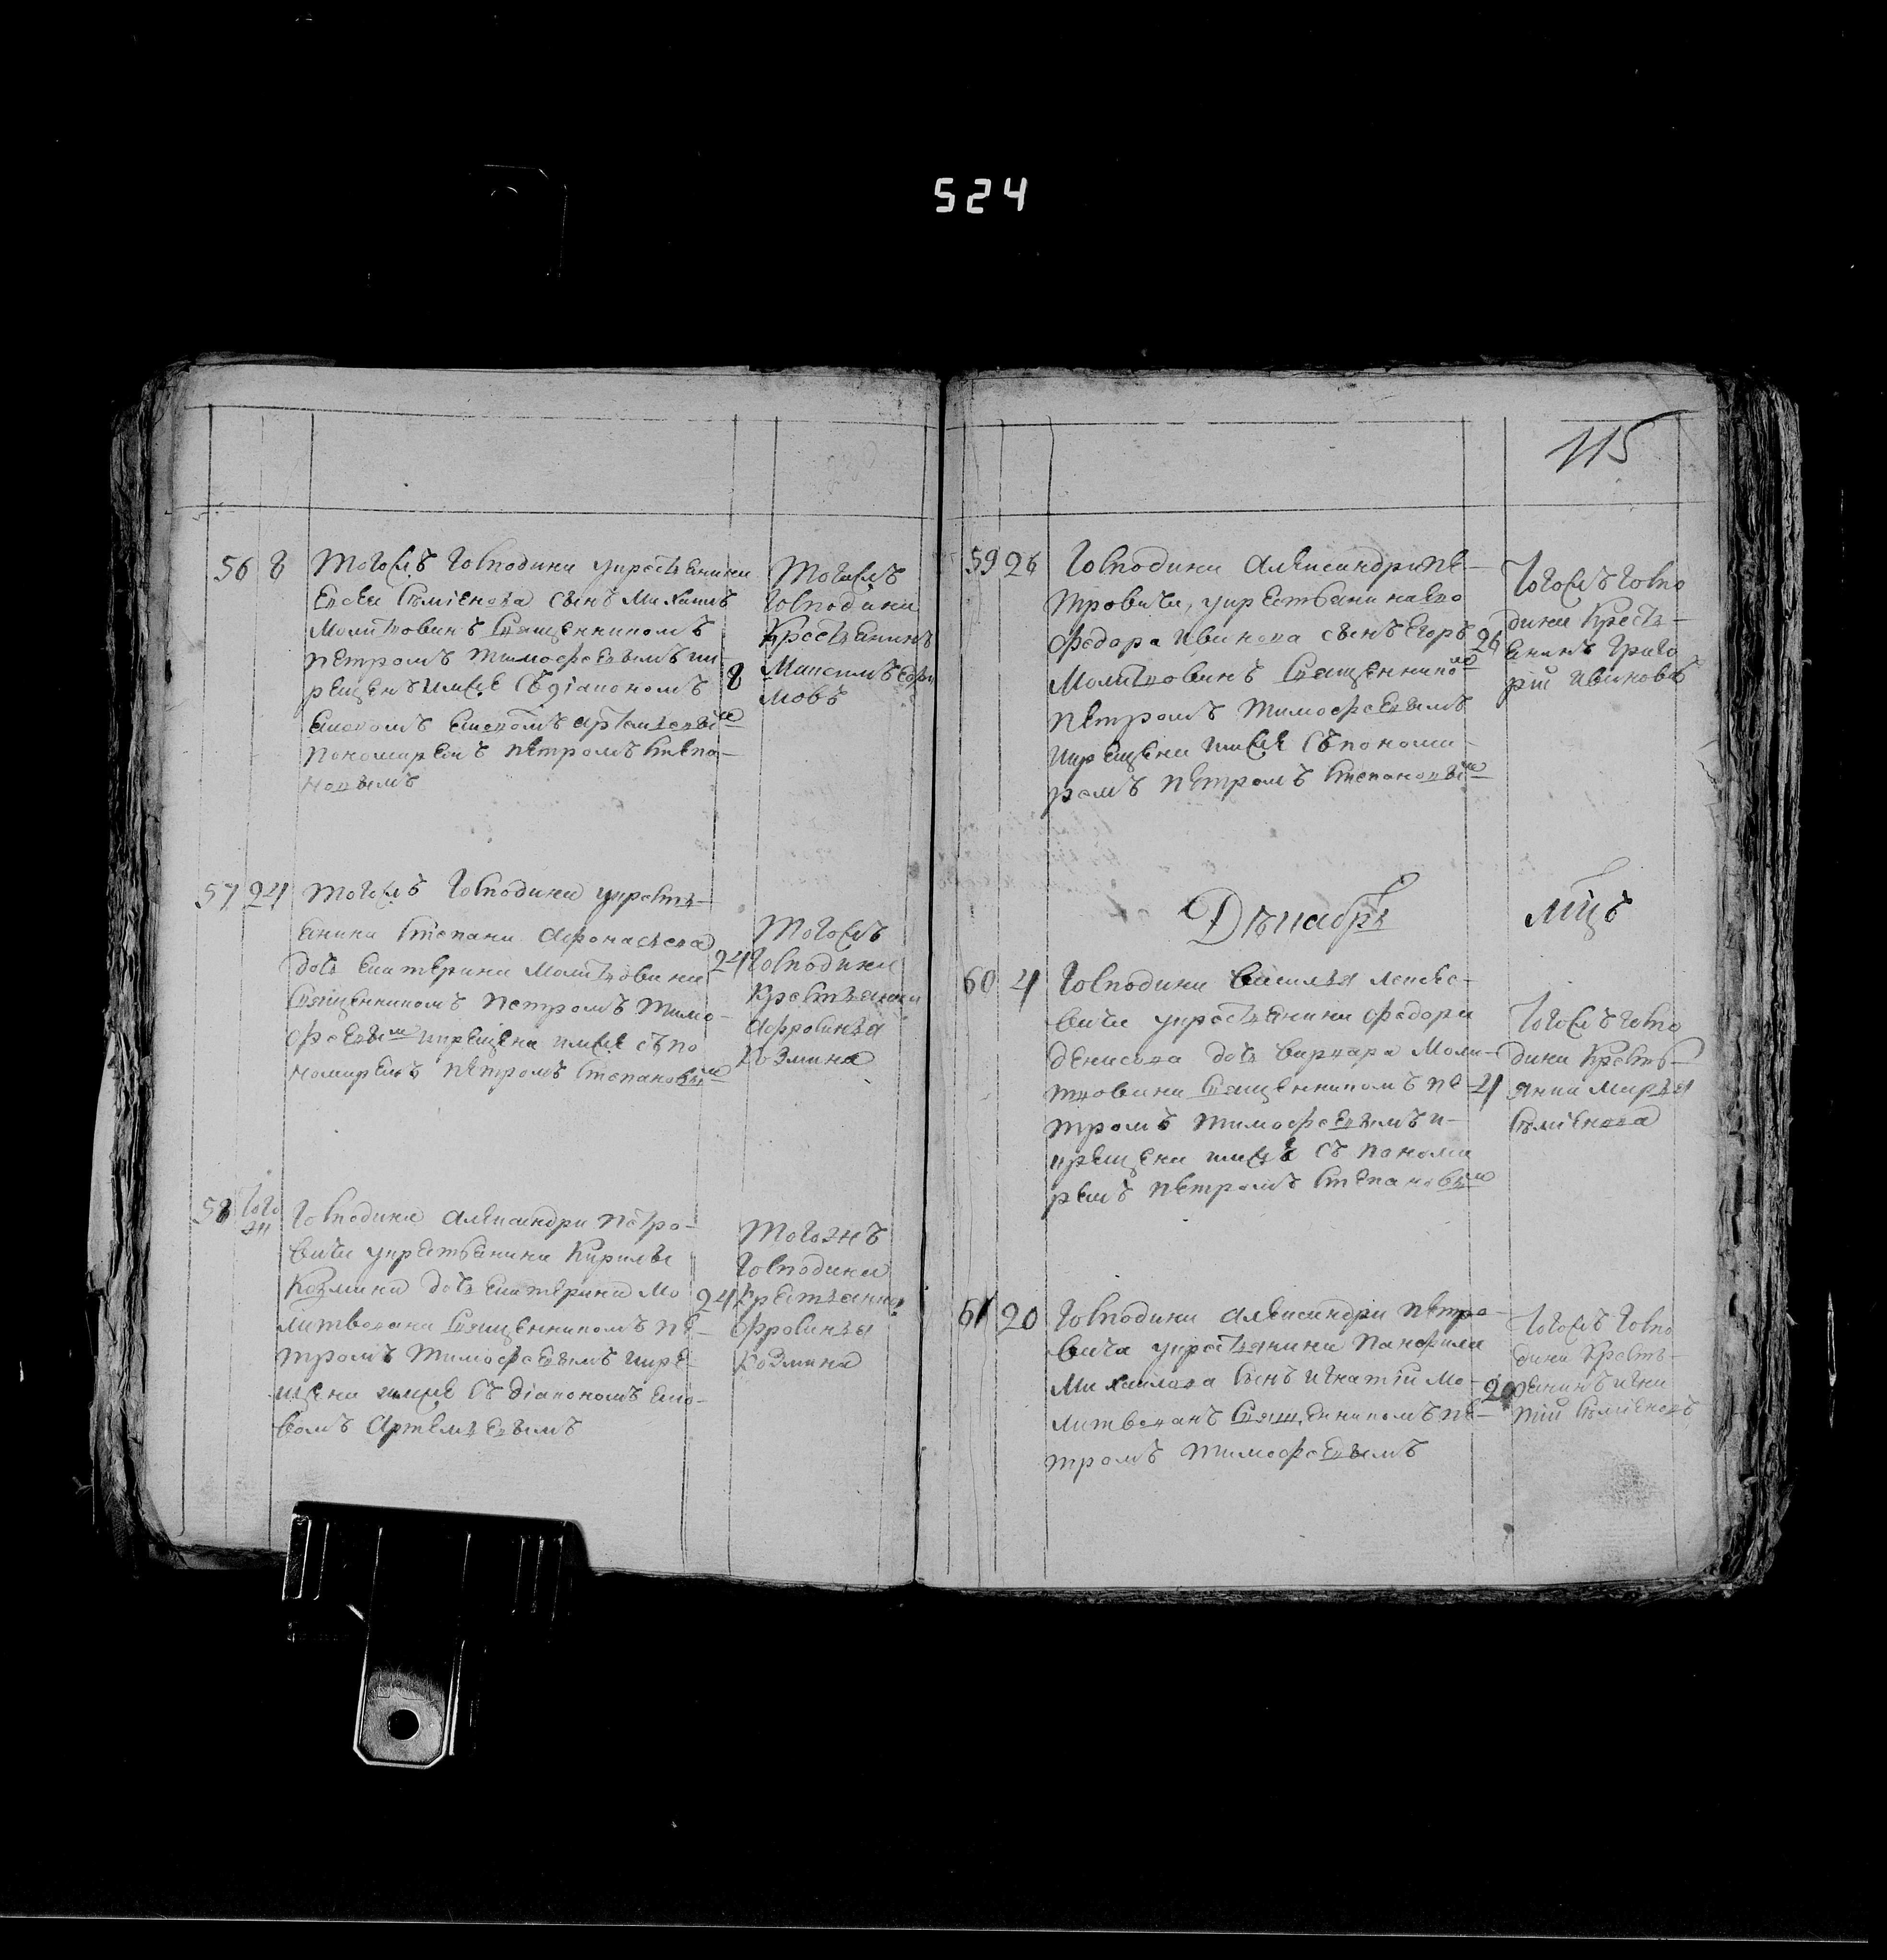 524
115
56 8 тогожъ Господина у крестьянина
Евсея Семіенова сынъ Михаилъ
молитвованъ Священникомъ
Петромъ Тимофеевымъ и к
рещенъ имже съ діакономъ
Артемьевым
Пономаремъ Петромъ Степа-
новымъ
8
Тогожъ
Господина
Крестьянинъ
Максимъ Ефи
мовъ
57 24 тогожъ Господина у кресть-
янина Степана Афонасьева
дочь Екатерина молитвована
Священникомъ Петромъ Тимо-
феевым и крещена имже съ по
номаремъ Петромъ Степановым
24
Тогожъ
Господина
Крестьянина
Афросинья
Козмина
58 того
ж
Господина Александра Петро-
вича у крестьянина Кирилы
Козмина дочь Екатерина мо
литвована Священникомъ Пе-
тромъ Тимофеевымъ и кре-
щена имже съ діакономъ
Артемьевымъ
24
Тогожъ
Господина
Крестьянина
Офросинья
Козмина
59 26 Господина Александра Пе-
тровича, у крестьянина
Федора Иванова сынъ Егоръ
молитвованъ Священнико
Петромъ Тимофеевымъ
и крещена имже съ понома-
ромъ Петромъ Степановым
26
Тогожъ Госпо
дина Кресть-
янинъ Григо
рій Ивановъ
Декабрь мцъ
60 4 Господина Василья Алексе-
вича у крестьянина Федора
Денисова дочь Варвара моли-
твована Священникомъ Пе-
тромъ Тимофеевымъ и
крещена имже съ понома
ремъ Петромъ Степановым
4
Тогожъ Госпо
дина Кресть-
янка Марья
Семіенова
61 20 Господина Александра Петро-
вича у крестьянина Панфила
Михаилова сынъ Игнатій мо-
литвованъ Священникомъ Пе-
тромъ Тимофеевымъ
20
Тогожъ Госпо
дина Кресть-
янинъ Игна
тій Семіеновъ